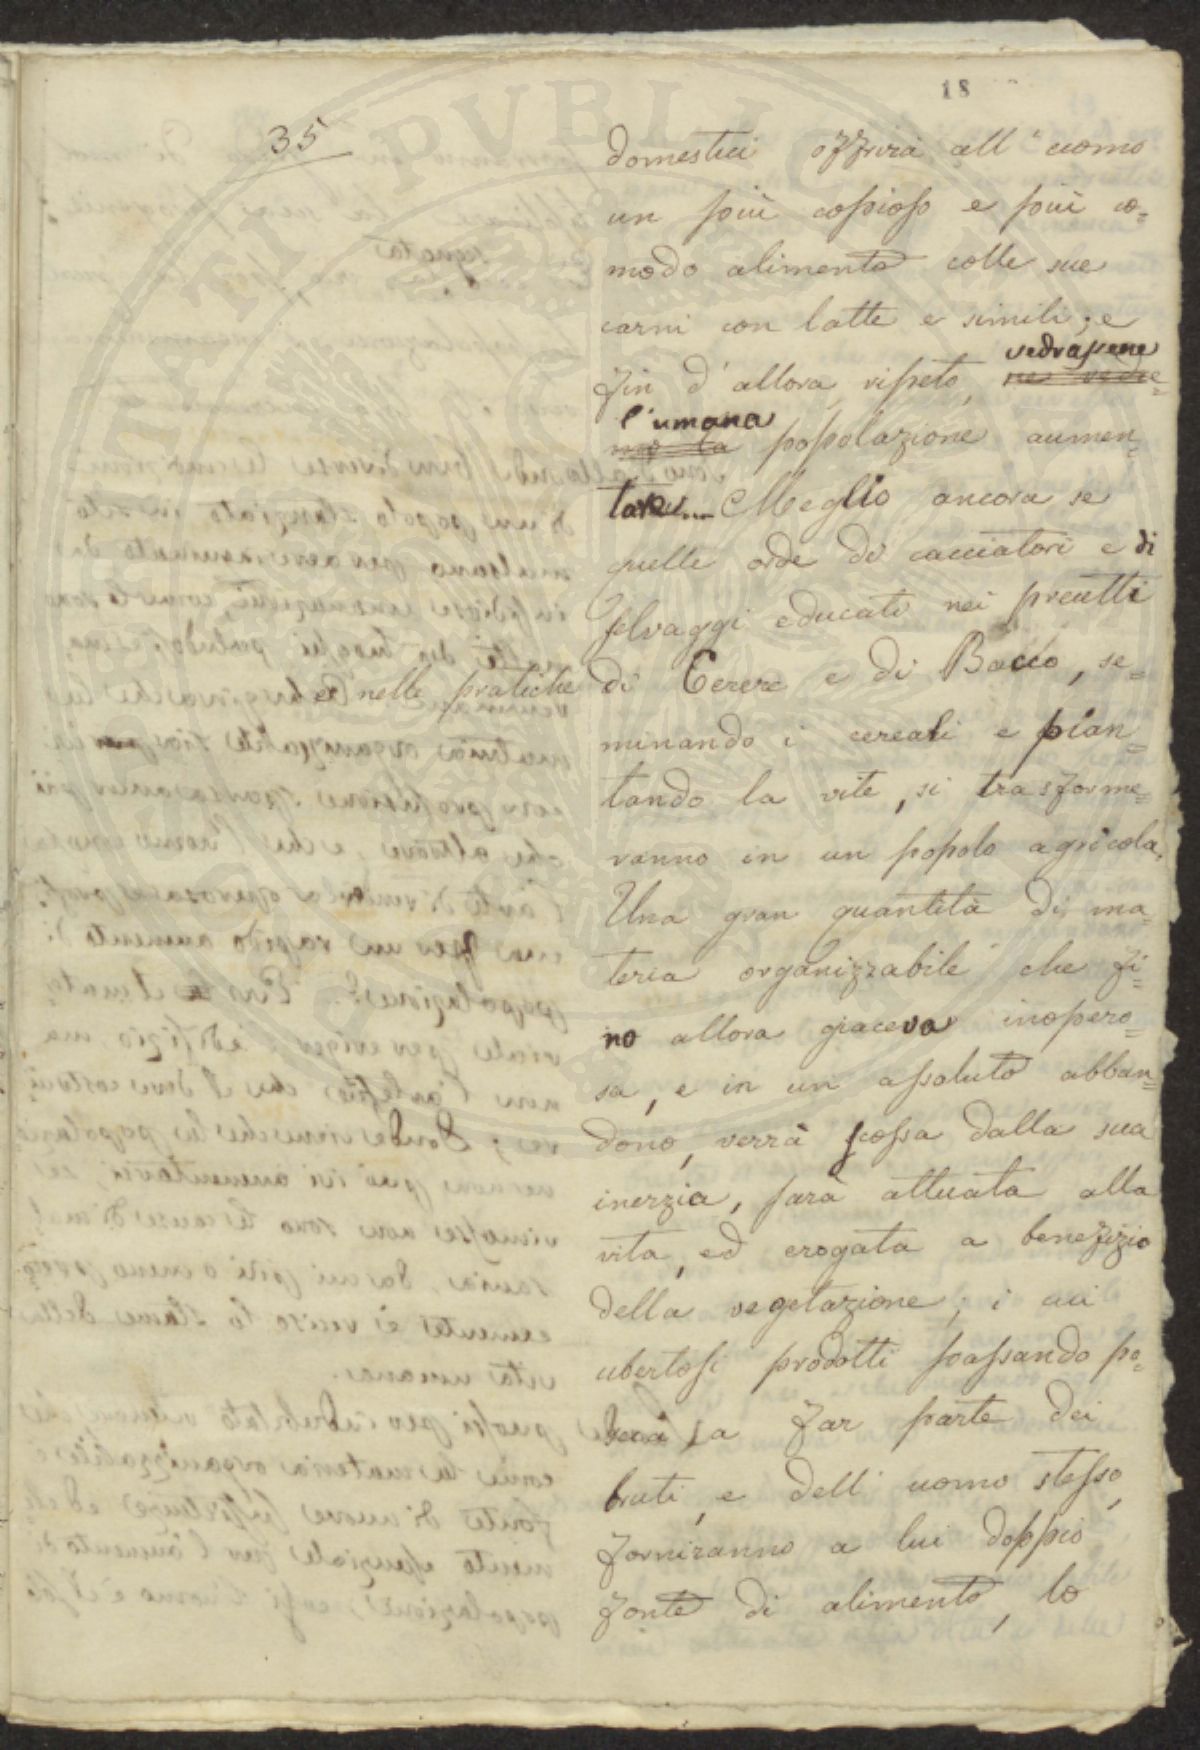 18
35
domestici offrirà all'uomo
un più copioso e più co=
modo alimento colle sue
carni con latte e simili; e
vedrassene
fin d'allora, ripeto, ne vedre=
l'umana
mo la popolazione aumen=
tare... Meglio ancora se
quelle orde di cacciatori e di
selvaggi educati nei precetti
e nelle pratiche di Cerere e di Bacco, se=
minando i cereali e pian=
tando la vite, si trasforme=
ranno in un popolo agricola.
Una gran quantità di ma=
teria organizzabile che fi=
no allora giaceva inopero=
sa, e in un assoluto abban=
dono, verrà scossa dalla sua
inerzia, sarà attuata alla
vita, ed erogata a benefizio
della vegetazione; i cui
ubertosi prodotti passando po=
scia a far parte dei
bruti, e dell'uomo stesso,
forniranno a lui doppio
fonte di alimento, lo